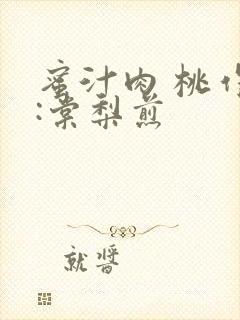 蜜汁肉桃作
:棠梨煎
就醬